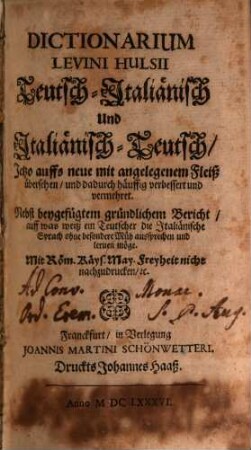 DICTIONARIUM
LEVINI HULSII
Teutsch-Italiänisch
Und
Italiänisch-Teutsch/
Jetzo auffs neue mit angelegenem Fleiß
übersehen/ und dadurch häuffig verbessert und
vermehret.
Nebst beygefügtem gründlichem Bericht/
auff was weiß ein Teutscher die Italiänische
Sprach ohne besondere Müh aussprechen und
lernen möge.
Mit Röm. Käys. May. Freyheit nicht
nachzudrucken/ ꝛc.
Ad Conv. Monac.
Ord. Erem. S. P. Aug.
Franckfurt/ in Verlegung
JOANNIS MARTINI SCHÖNWETTERI.
Druckts Johannes Haaß.
Anno M DC LXXXVI.